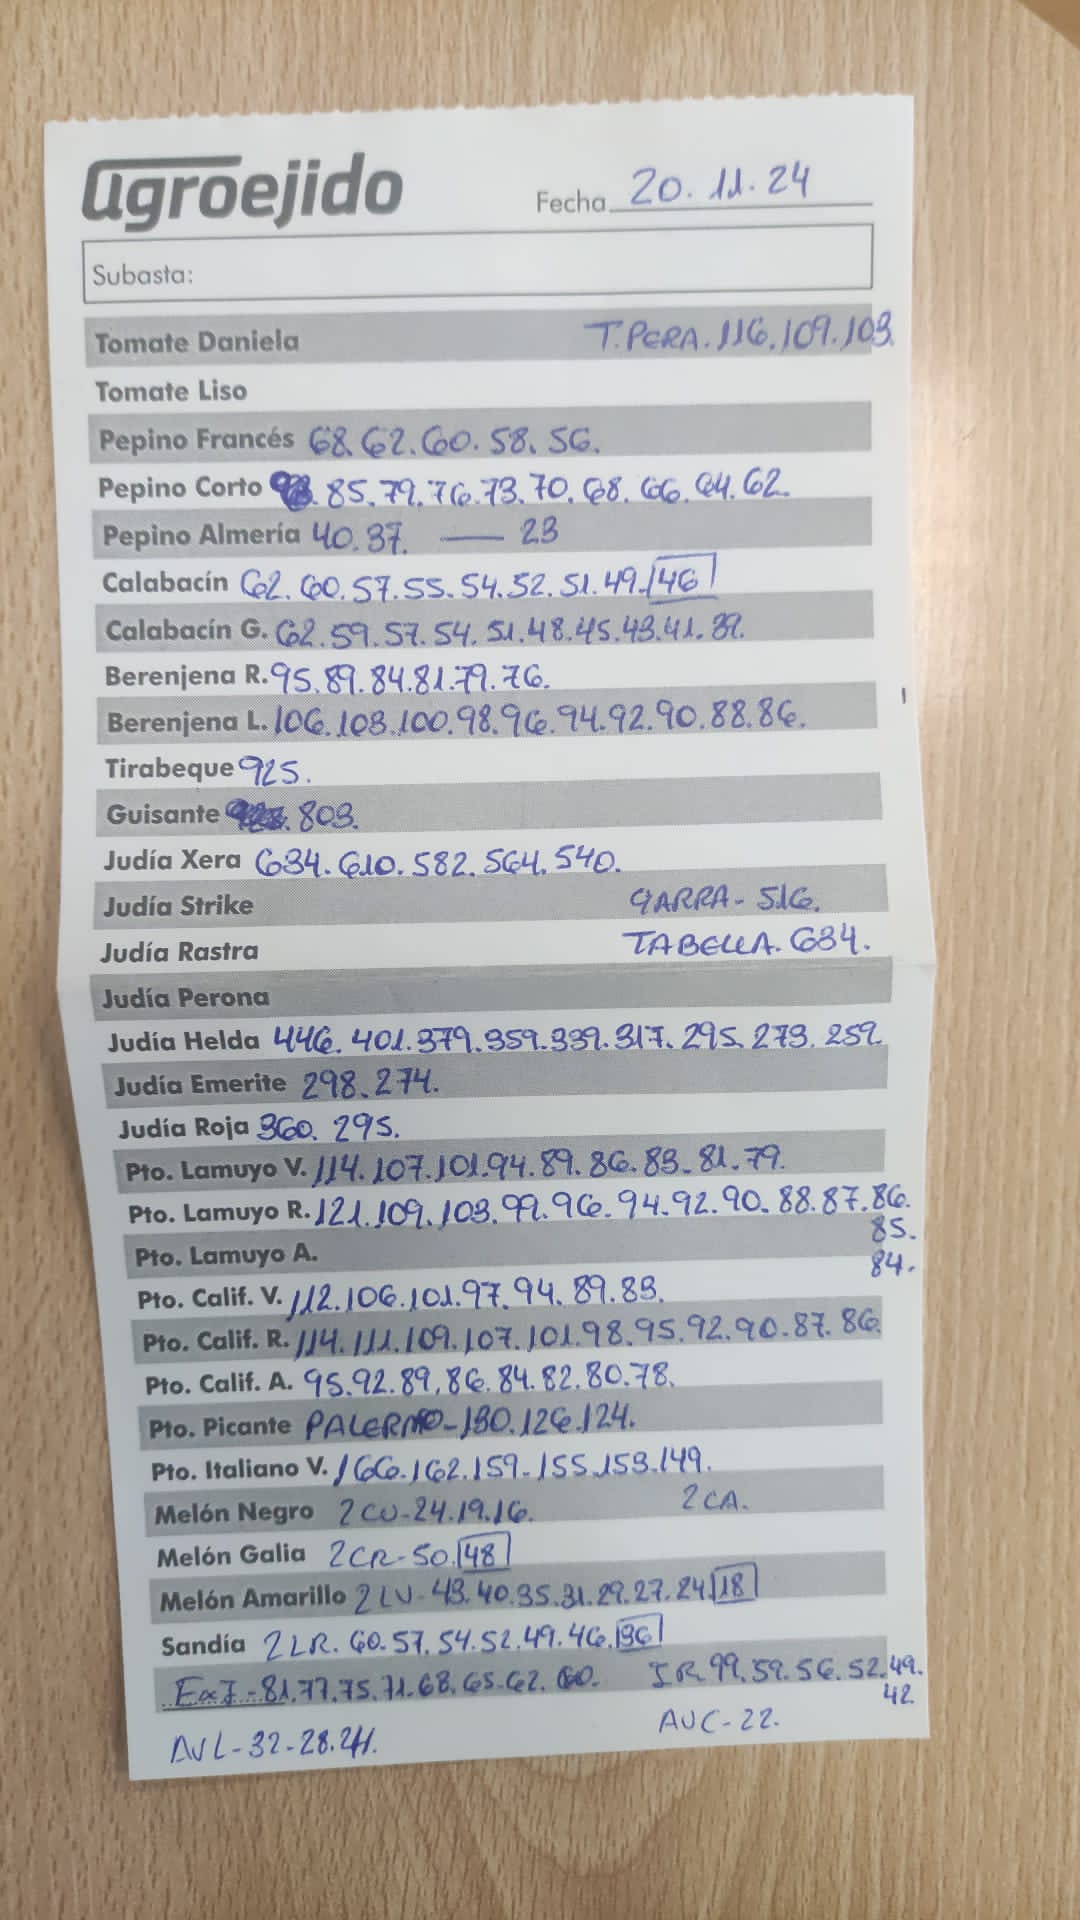 agroejido
Fecha 20.11.24
Subasta:
Tomate Daniela T.PERA.116.109.103.
Tomate Liso
Pepino Francés 68.62.60.58.56.
Pepino Corto 85.79.76.73.70.68.66.64.62.
Pepino Almería 40.37. — 23
Calabacín 62.60.57.55.54.52.51.49.46
Calabacín G. 62.59.57.54.51.48.45.43.41.39.
Berenjena R. 95.89.84.81.79.76.
Berenjena L. 106.103.100.98.96.94.92.90.88.86.
Tirabeque 925.
Guisante 803.
Judía Xera 634.610.582.564.540.
Judía Strike GARRA-516.
Judía Rastra TABELLA.634.
Judía Perona
Judía Helda 446.401.379.359.339.317.295.273.259.
Judía Emerite 298.274.
Judía Roja 360.295.
Pto. Lamuyo V. 114.107.101.94.89.86.83.81.79.
Pto. Lamuyo R. 121.109.103.99.96.94.92.90.88.87.86.
85.
Pto. Lamuyo A.
84.
Pto. Calif. V. 112.106.101.97.94.89.83.
Pto. Calif. R. 114.111.109.107.101.98.95.92.90.87.86.
Pto. Calif. A. 95.92.89,86.84.82.80.78.
Pto. Picante PALERMO-130.126.124.
Pto. Italiano V. 166.162.159-155.153.149.
Melón Negro 2CU-24.19.16. 2CA.
Melón Galia 2CR-50.48
Melón Amarillo 2LV-43.40.35.31.29.27.24.18
Sandía 2LR.60.57.54.52.49.46.36
-81.77.75.71.68.65.62.60. IR.99.59.56.52.49.
42
AVL-32-28.24. AVC-22.